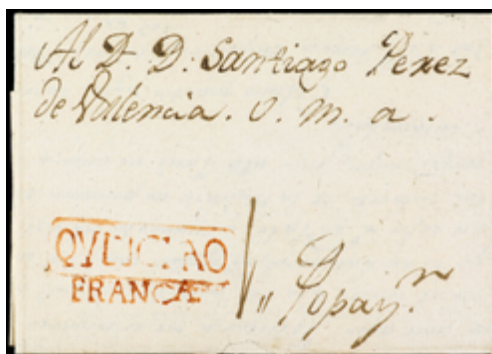 Al D. D. Santiago Perez
de Valencia. O. m. a.
QVILICHAO
FRANCA
Popay.n